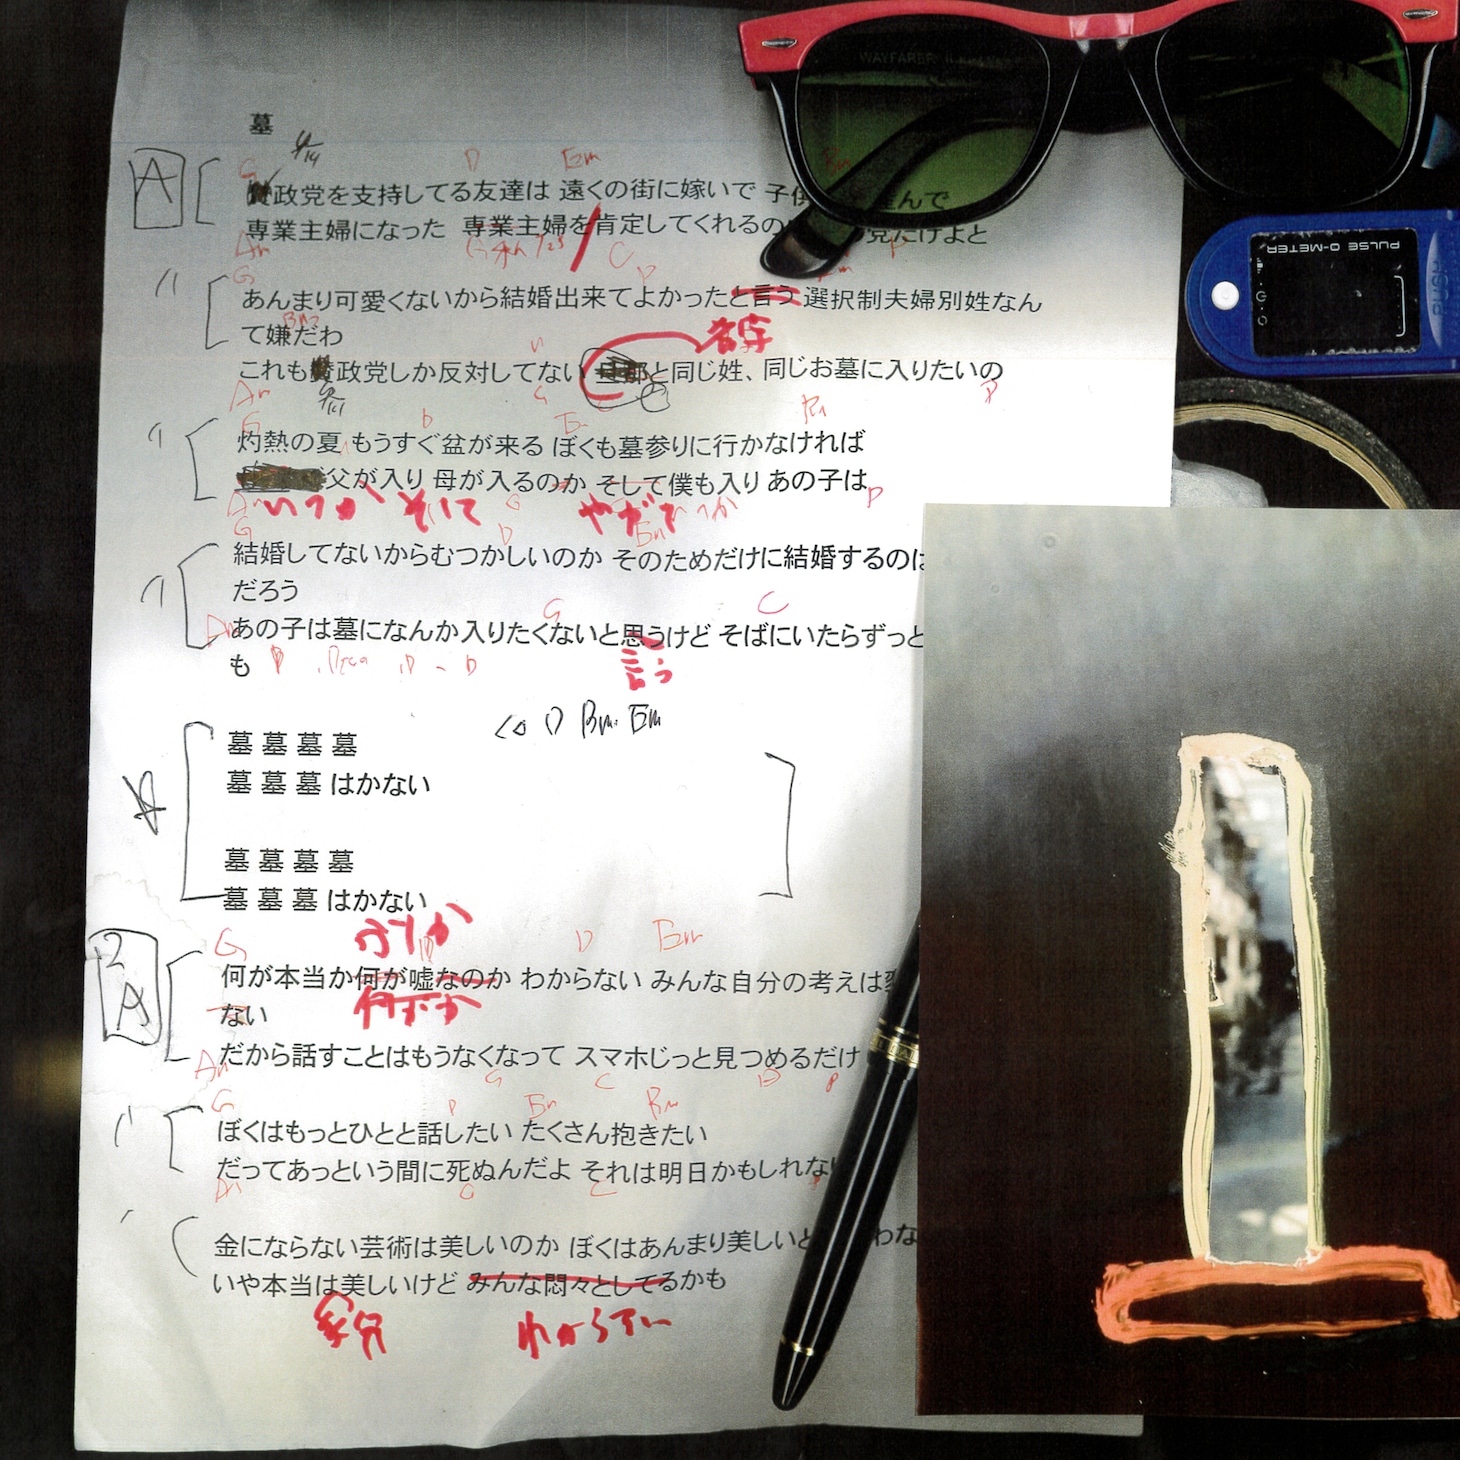 墓
A
G D Em
政党を支持してる友達は 遠くの街に嫁いで
専業主婦になった 専業主婦を肯定してくれるの
党だけよと
Am G C
G D
あんまり可愛くないから結婚出来てよかったと言う 選択制夫婦別姓なん
て嫌だわ
これも 政党しか反対してない と同じ姓、同じお墓に入りたいの
名字
Am G
G D Em Bm
灼熱の夏 もうすぐ盆が来る ぼくも墓参りに行かなければ
父が入り 母が入るのか そして僕も入り あの子は
Am いつか そして G やがて D
G D Em
結婚してないからむつかしいのか そのためだけに結婚するのは
だろう
G C
あの子は墓になんか入りたくないと思うけど そばにいたらずっと
も
言う
D Bm Em
墓 墓 墓 墓
墓 墓 墓 はかない
墓 墓 墓 墓
墓 墓 墓 はかない
2A
G D Em
何が本当か何が嘘なのか わからない みんな自分の考えは
ない
だから話すことはもうなくなって スマホじっと見つめるだけ
Am G C D
G D Em Bm
ぼくはもっとひとと話したい たくさん抱きたい
だってあっという間に死ぬんだよ それは明日かもしれない
Am G C
金にならない芸術は美しいのか ぼくはあんまり美しいと
いや本当は美しいけど みんな悶々としてるかも
多分 わからない
WAYFARER
PULSE O-METER